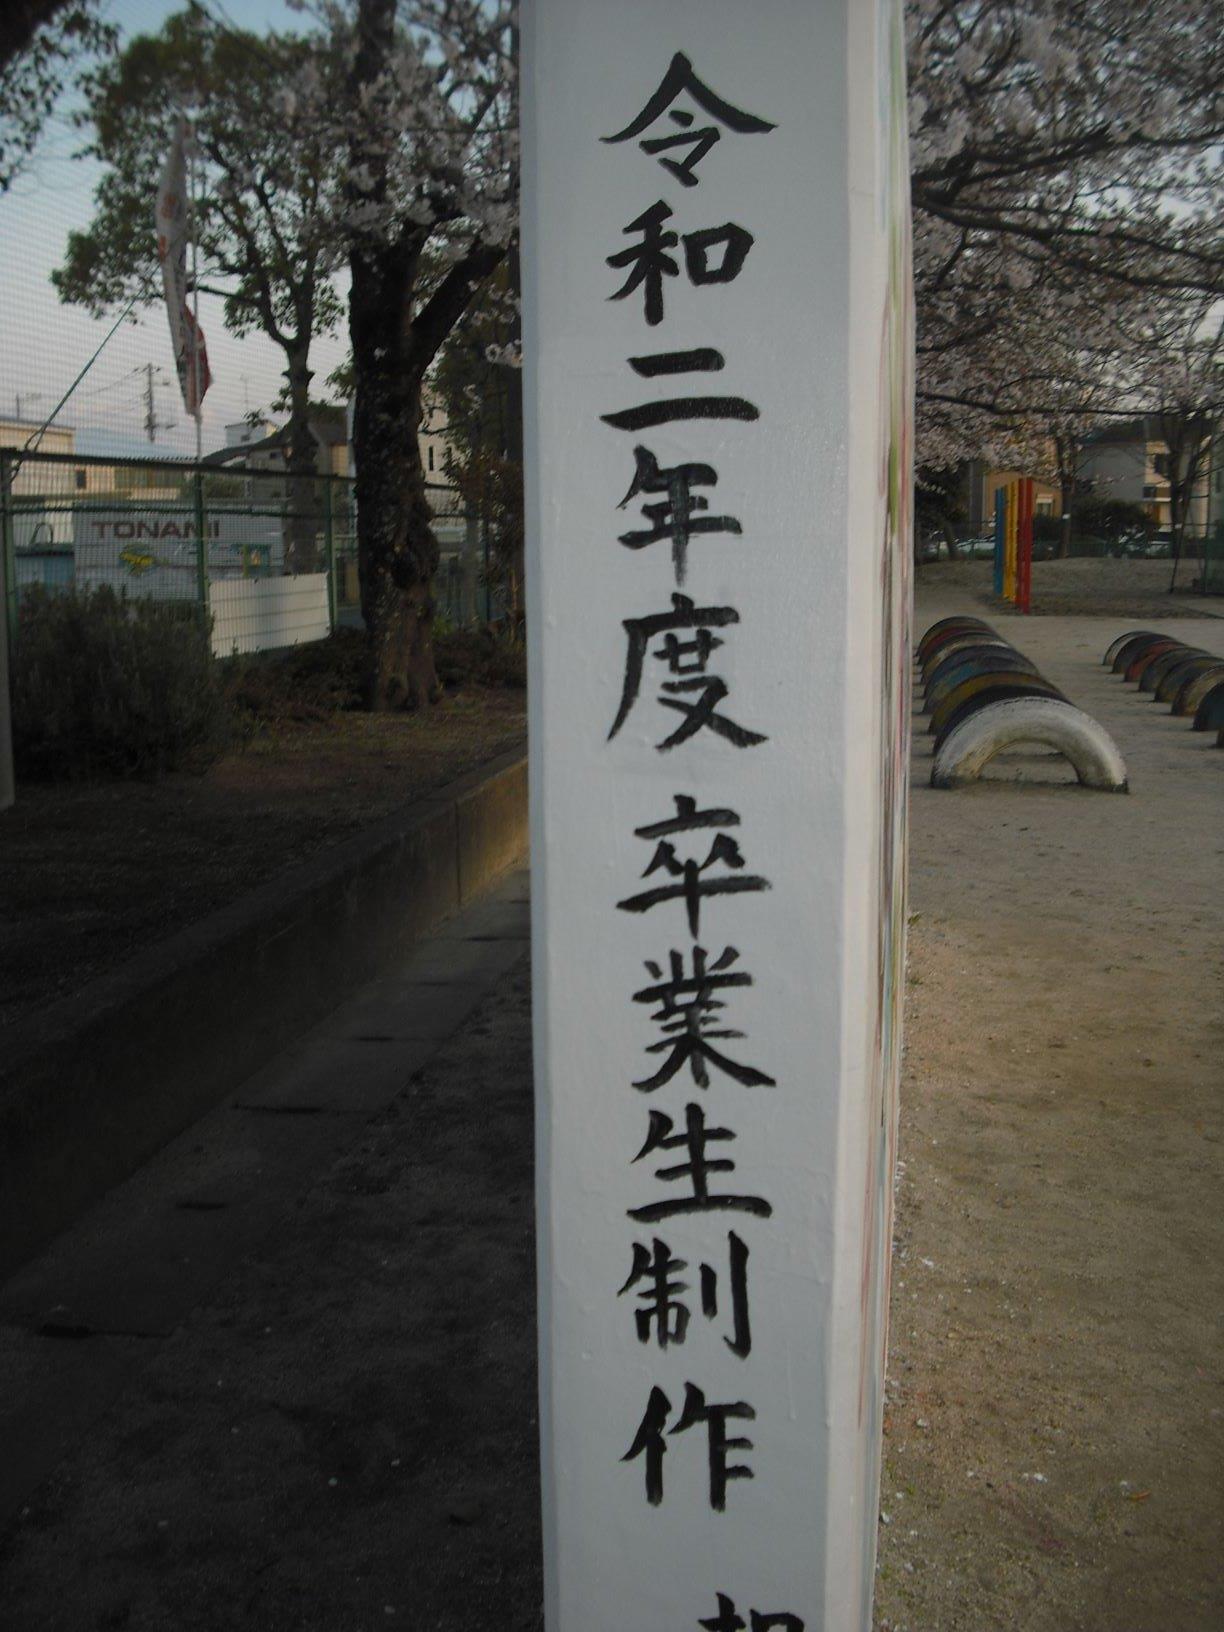 令和二年度 卒業生制作
TONAMI